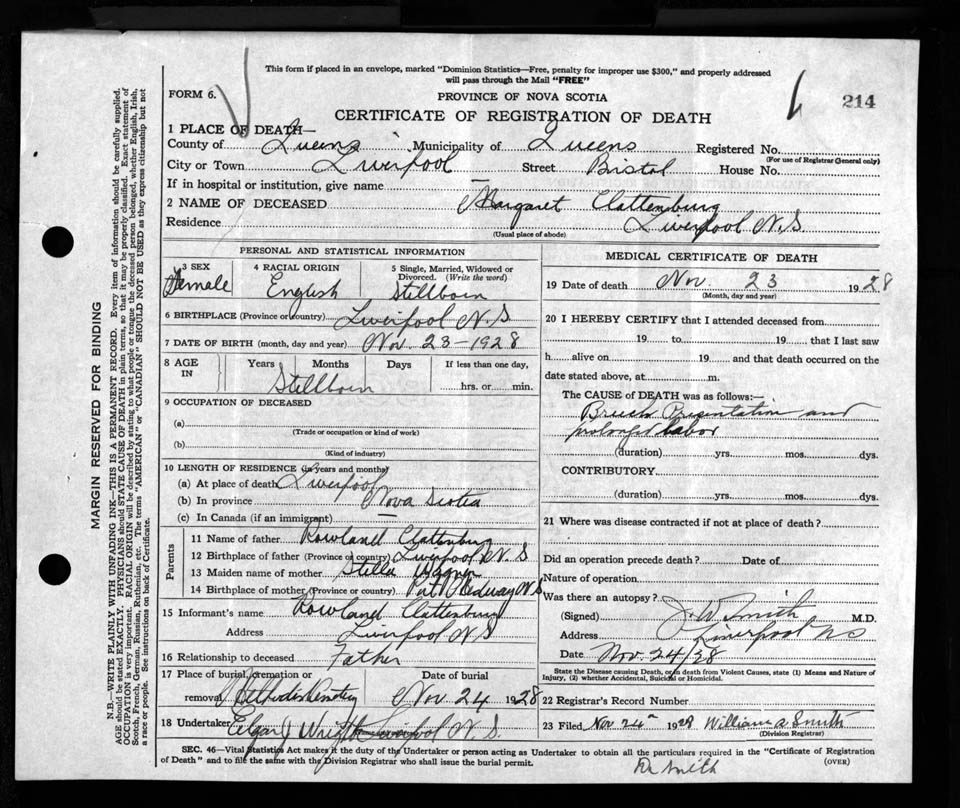 This form if placed in an envelope, marked "Dominion Statistics—Free, penalty for improper use $300," and properly addressed
will pass through the Mail "FREE"
FORM 6.
PROVINCE OF NOVA SCOTIA
214
CERTIFICATE OF REGISTRATION OF DEATH
1 PLACE OF DEATH—
County of Queens Municipality of Queens Registered No.
(For use of Registrar General only)
City or Town Liverpool Street Bristol House No.
If in hospital or institution, give name —
2 NAME OF DECEASED Margaret Clattenburg
Residence Liverpool N.S
(Usual place of abode)
PERSONAL AND STATISTICAL INFORMATION
3 SEX 4 RACIAL ORIGIN 5 Single, Married, Widowed or
Divorced. (Write the word)
Female English Stillborn
6 BIRTHPLACE (Province or country) Liverpool N.S
7 DATE OF BIRTH (month, day and year) Nov. 23—1928
8 AGE IN Years Months Days If less than one day,
Stillborn hrs. or min.
9 OCCUPATION OF DECEASED
(a)
(Trade or occupation or kind of work)
(b)
(Kind of industry)
10 LENGTH OF RESIDENCE (in years and months)
(a) At place of death Liverpool
(b) In province Nova Scotia
(c) In Canada (if an immigrant) —
Parents
11 Name of father Rowland Clattenburg
12 Birthplace of father (Province or country) Liverpool N.S
13 Maiden name of mother Stella
14 Birthplace of mother (Province or country) Port Medway N.S
15 Informant's name Rowland Clattenburg
Address Liverpool N.S
16 Relationship to deceased Father
17 Place of burial, cremation or Date of burial
removal Methodist Cemetery Nov 24 1928
18 Undertaker Edgar J Wright Liverpool N.S.
MEDICAL CERTIFICATE OF DEATH
19 Date of death Nov. 23 1928
(Month, day and year)
20 I HEREBY CERTIFY that I attended deceased from
19 to 19 that I last saw
h alive on 19 and that death occurred on the
date stated above, at m.
The CAUSE of DEATH was as follows:—
Breech Presentation and
prolonged labor
(duration) yrs. mos. dys.
CONTRIBUTORY
(duration) yrs. mos. dys.
21 Where was disease contracted if not at place of death?
Did an operation precede death? Date of
Nature of operation
Was there an autopsy?
(Signed) J. W. Smith M.D.
Address Liverpool NS
Date Nov. 24/28
State the Disease causing Death, or in death from Violent Causes, state (1) Means and Nature of
Injury, (2) whether Accidental, Suicidal or Homicidal.
22 Registrar's Record Number
23 Filed Nov 24th 1928 William A Smith
(Division Registrar)
SEC. 46—Vital Statistics Act makes it the duty of the Undertaker or person acting as Undertaker to obtain all the particulars required in the "Certificate of Registration
of Death" and to file the same with the Division Registrar who shall issue the burial permit.
(OVER)
Dr Smith
MARGIN RESERVED FOR BINDING
N.B.—WRITE PLAINLY WITH UNFADING INK—THIS IS A PERMANENT RECORD. Every item of information should be carefully supplied.
AGE should be stated EXACTLY. PHYSICIANS should STATE CAUSE OF DEATH in plain terms, so that it may be properly classified. Exact statement of
OCCUPATION is very important. RACIAL ORIGIN will be described by stating to what people or tongue the deceased person belonged, whether English, Irish,
Scotch, French, German, Russian, Ruthenian, etc. The terms "AMERICAN" or "CANADIAN" SHOULD NOT BE USED as they express citizenship but not
a race or people. See instructions on back of Certificate.